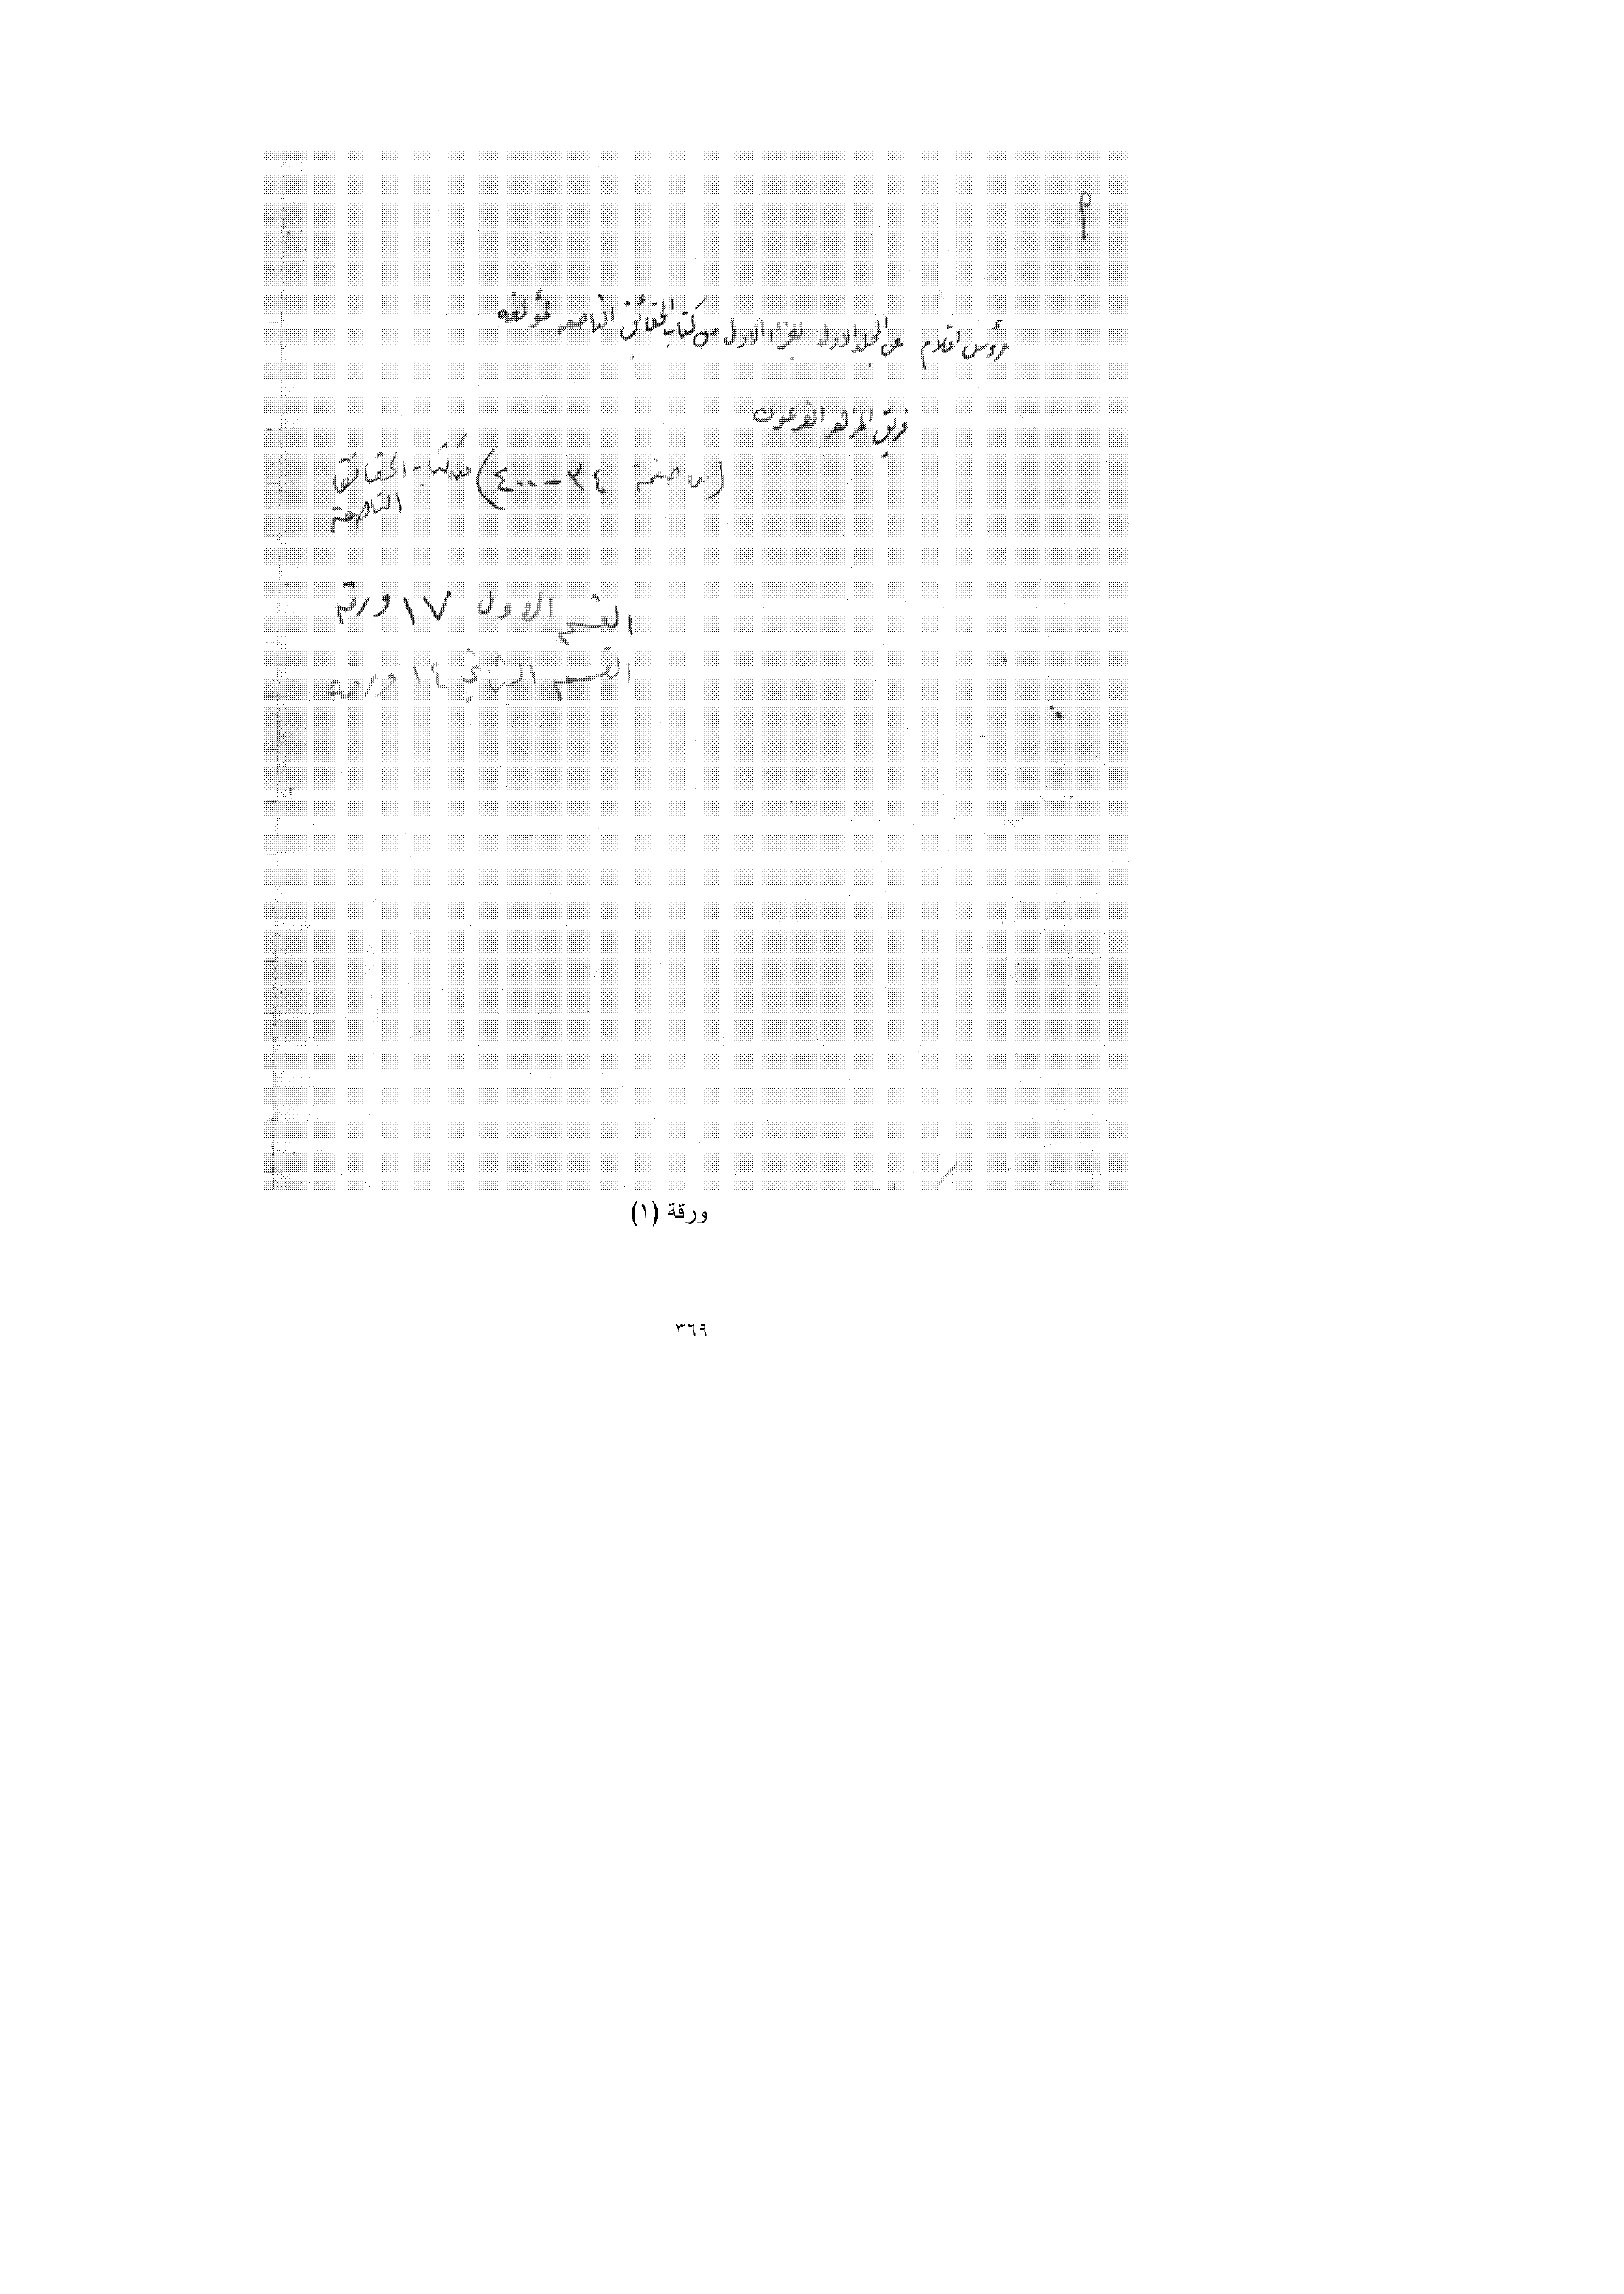 م
رؤس اقلام عن المجلد الاول للجزأ الاول من كتاب الحقائق الناصعه لمؤلفه
فريق المزهر الفرعون
(من صفحة ٣٤ - ٤٠٠) من كتاب الحقائق
الناصعة
القسم الاول ١٧ ورقة
القسم الثاني ١٤ ورقه
ورقة (١)
٣٦٩